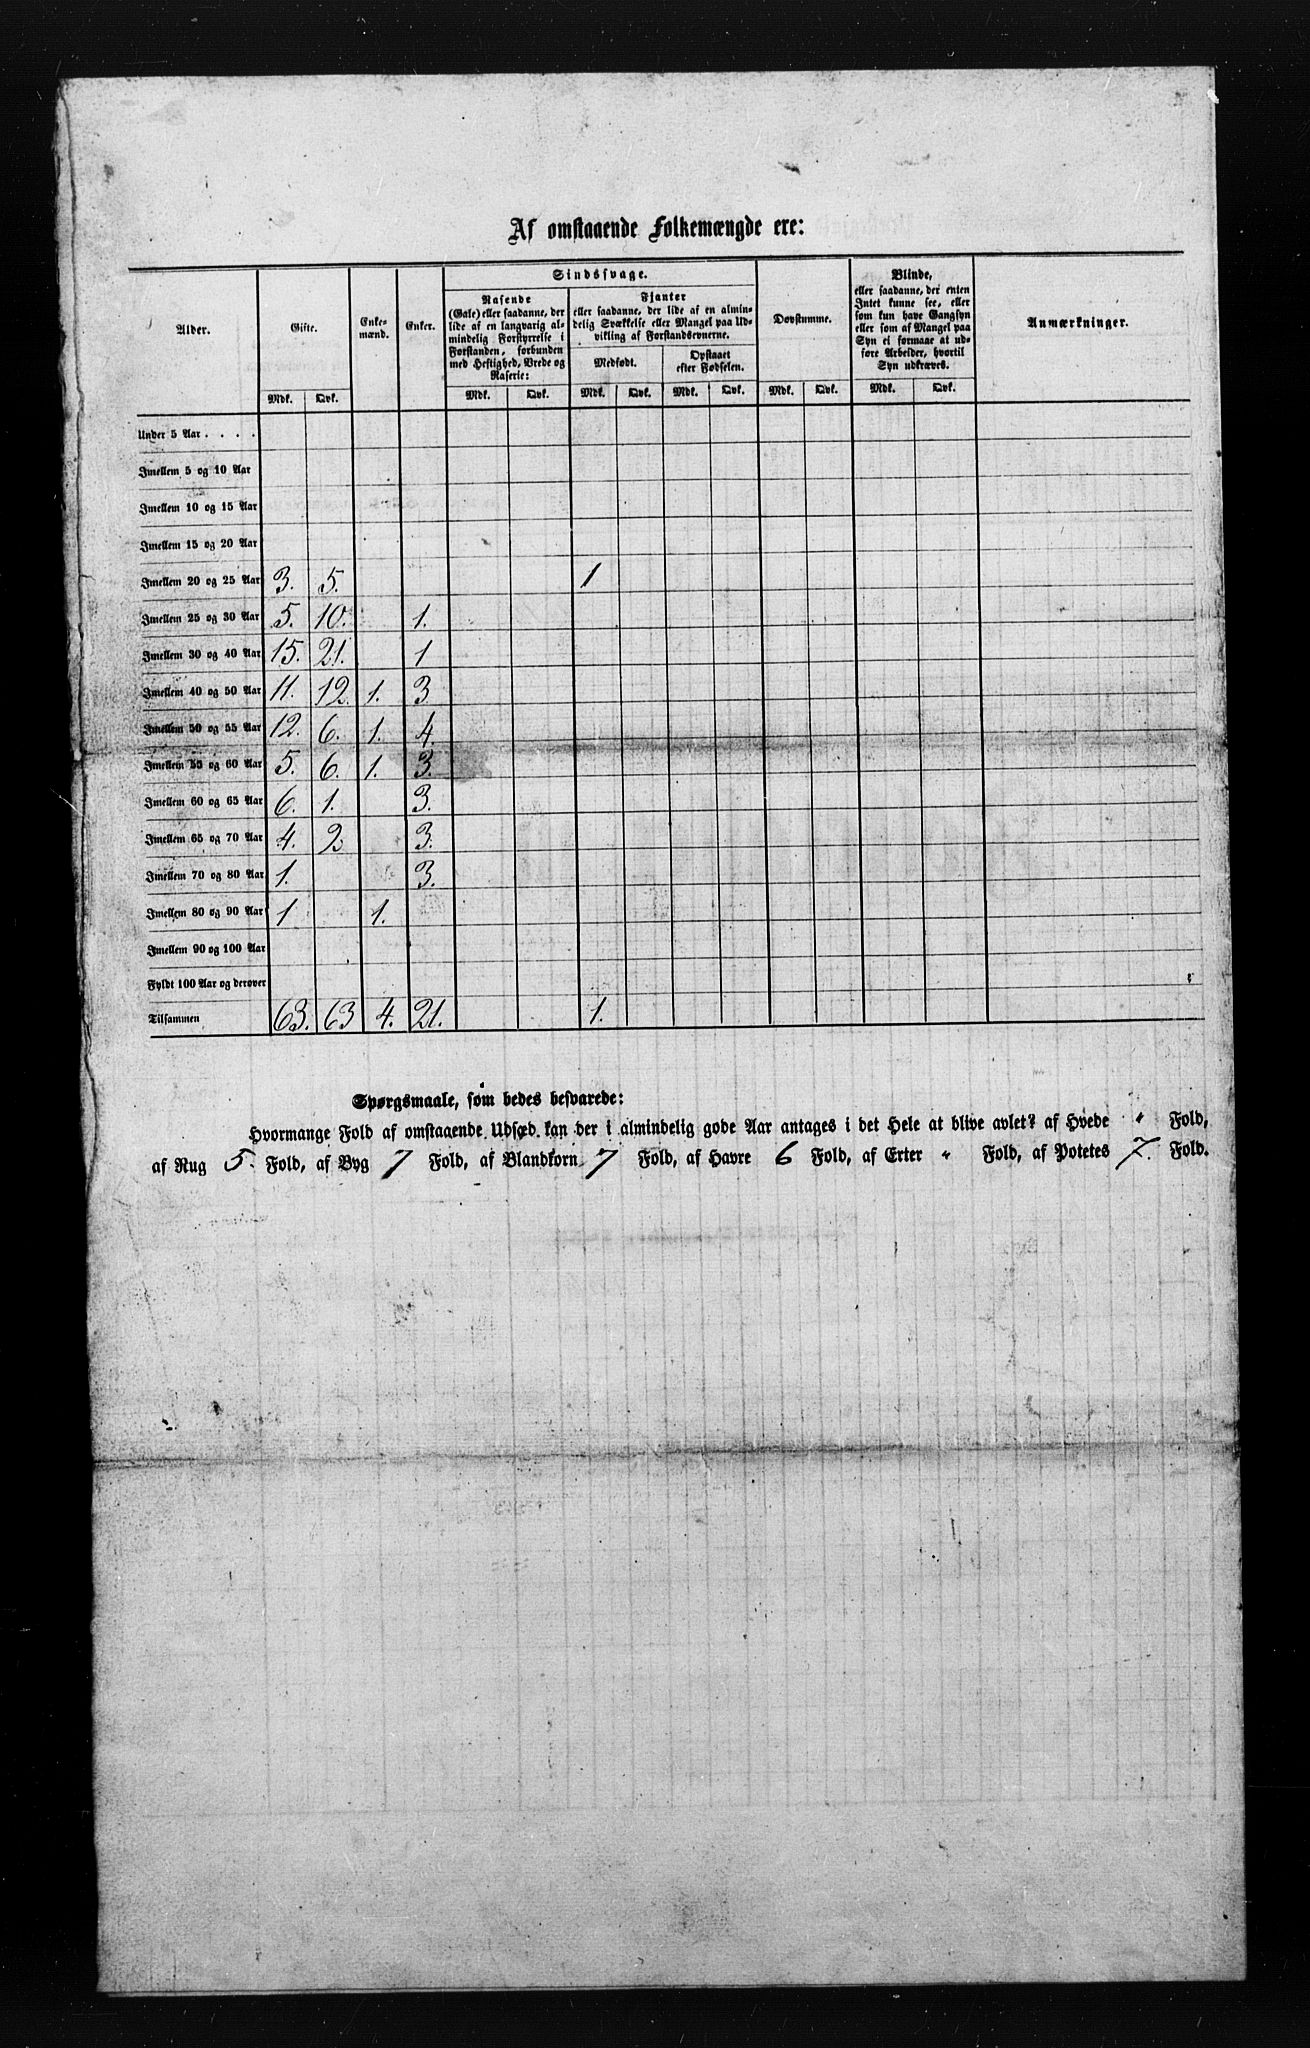 Af omstaaende Folkemængde ere:
Alder. Gifte. Enke-mænd. Enker. Sindssvage. Dovstumme. Blinde, Anmærkninger.
Rasende
(Gale) eller saadanne, der
lide af en langvarig al-
mindelig Forstyrrelse i
Forstanden, forbunden
med Heftighed, Vrede og
Raserie:
Fjanter
eller saadanne, der lide af en almin-
delig Svækkelse eller Mangel paa Ud-
vikling af Forstandsevnerne.
Medfødt. Opstaaet
efter Fødselen.
eller saadanne, der enten
Intet kunne see, eller
som kun have Gangsyn
eller som af Mangel paa
Syn ei formaae at ud-
føre Arbeider, hvortil
Syn udkræves.
Mdk. Qvk. Mdk. Qvk. Mdk. Qvk. Mdk. Qvk. Mdk. Qvk. Mdk. Qvk.
Under 5 Aar . . . .
Imellem 5 og 10 Aar
Imellem 10 og 15 Aar
Imellem 15 og 20 Aar
Imellem 20 og 25 Aar 3. 5. 1
Imellem 25 og 30 Aar 5. 10. 1.
Imellem 30 og 40 Aar 15. 21. 1
Imellem 40 og 50 Aar 11. 12. 1. 3
Imellem 50 og 55 Aar 12. 6. 1. 4.
Imellem 55 og 60 Aar 5. 6. 1. 3.
Imellem 60 og 65 Aar 6. 1. 3.
Imellem 65 og 70 Aar 4. 2 3.
Imellem 70 og 80 Aar 1. 3.
Imellem 80 og 90 Aar 1 1.
Imellem 90 og 100 Aar
Fyldt 100 Aar og derover
Tilsammen 63. 63 4. 21. 1.
Spørgsmaale, som bedes besvarede:
Hvormange Fold af omstaaende Udsæd kan der i almindelig gode Aar antages i det Hele at blive avlet? af Hvede " Fold,
af Rug 5 Fold, af Byg 7 Fold, af Blandkorn 7 Fold, af Havre 6 Fold, af Erter " Fold, af Potetes 7. Fold.